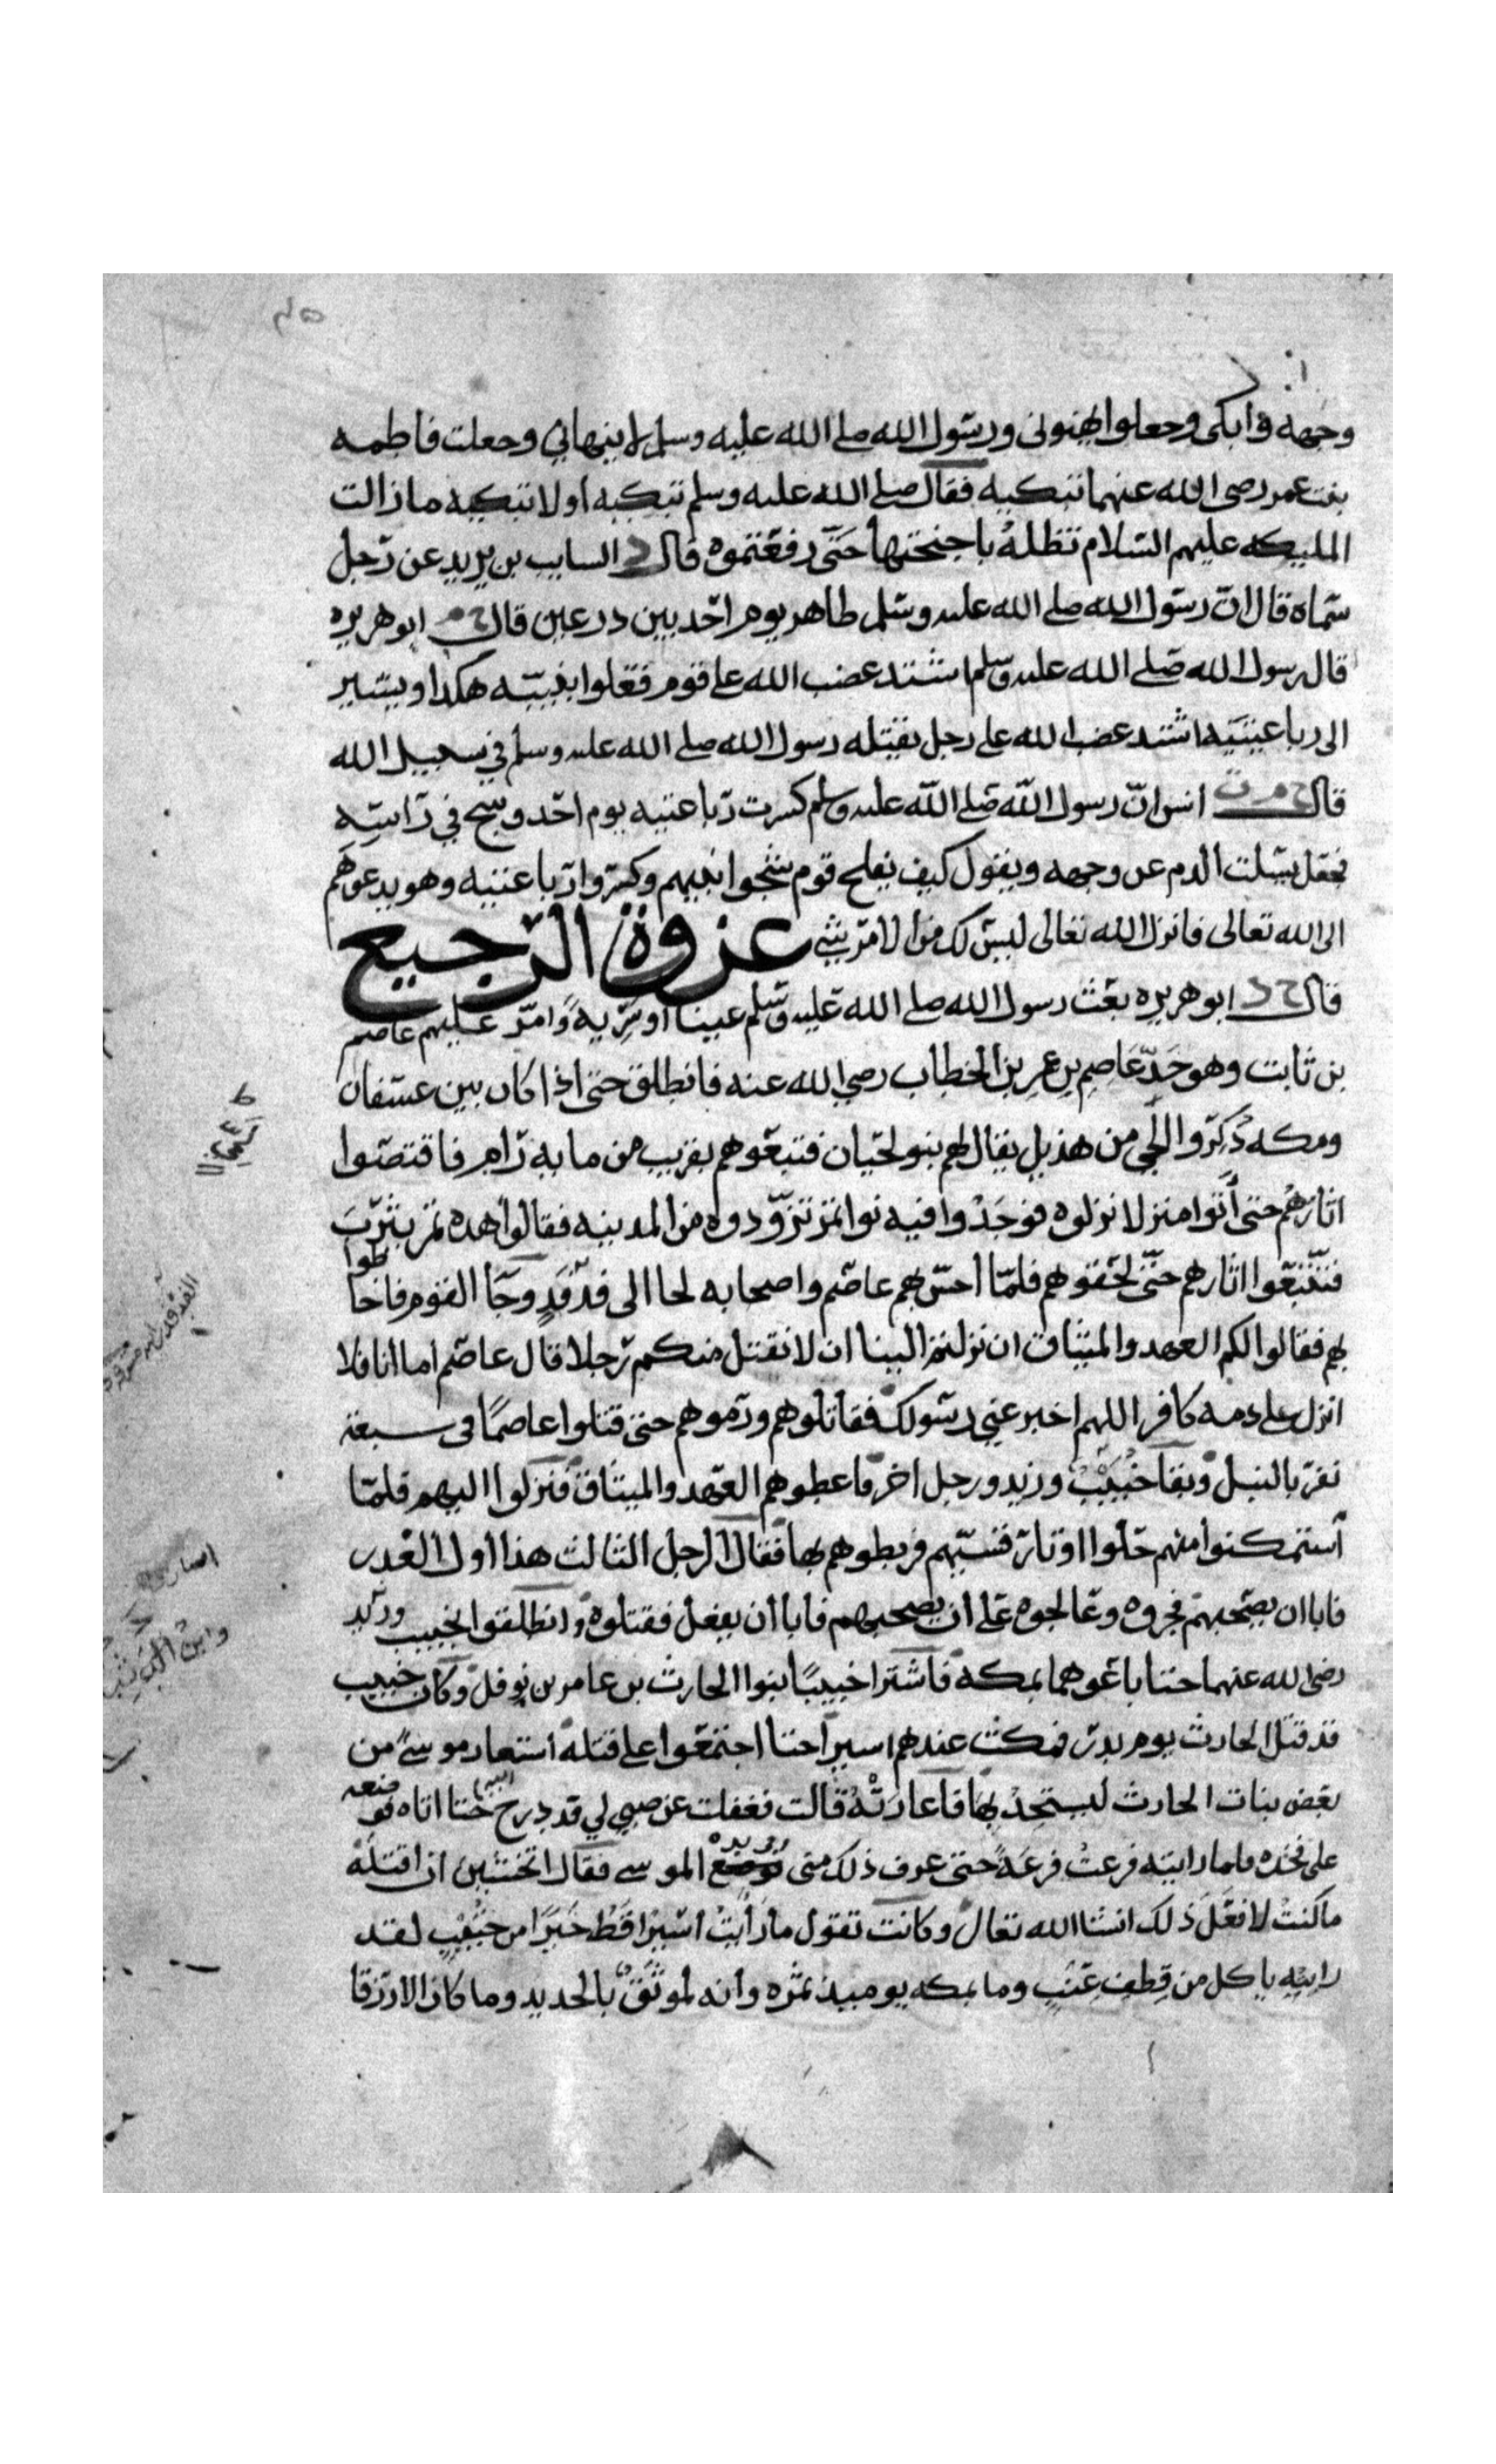 وجهه وابكى وجعلوا ينهونى ورسول الله صلى الله عليه وسلم لا ينهاني وجعلت فاطمه
بنت عمر رضى الله عنهما تبكيه فقال صلى الله عليه وسلم تبكيه او لا تبكيه ما زالت
المليكه عليهم السلام تظله باجنحتها حتى رفعتموه قال د السايب بن يزيد عن رجل
سماه قال ان رسول الله صلى الله عليه وسلم ظاهر يوم احد بين درعين قال خ م ابو هريره
قال رسول الله صلى الله عليه وسلم اشتد غضب الله على قوم فعلوا بنبيه هكذا ويشير
الى رباعيتيه اشتد غضب الله على رجل يقتله رسول الله صلى الله عليه وسلم في سبيل الله
قال خ م ت انس ان رسول الله صلى الله عليه وسلم كسرت رباعيتيه يوم احد وشج في راسه
فجعل يسلت الدم عن وجهه ويقول كيف يفلح قوم شجوا نبيهم وكسروا رباعيتيه وهو يدعوهم
الى الله تعالى فانزل الله تعالى ليس لك من الامر شي غزوة الرجيع
قال خ د ابو هريره بعث رسول الله صلى الله عليه وسلم عينا او سرية وامر عليهم عاصم
بن ثابت وهو جد عاصم بن عمر بن الخطاب رضي الله عنه فانطلق حتى اذا كان بين عسفان
ومكه ذكروا لحي من هذيل يقال لهم بنو لحيان فتبعوهم بقريب من مايه رام فاقتصوا
اثارهم حتى أتوا منزلا نزلوه فوجدوا فيه نوا تمر تزودوه من المدينه فقالوا هذه تمر يثرب
فتتبعوا اثارهم حتى لحقوهم فلما احس بهم عاصم واصحابه لجا الى فدفد وجا القوم فاحاطوا
بهم فقالوا لكم العهد والميثاق ان نزلتم الينا ان لا نقتل منكم رجلا قال عاصم اما انا فلا
انزل على ذمه كافر اللهم اخبر عني رسولك فقاتلوهم ورموهم حتى قتلوا عاصما في سبعة
نفر بالنبل وبقا خبيب وزيد ورجل اخر فاعطوهم العهد والميثاق فنزلوا اليهم فلما
استمكنوا منهم حلوا اوتار قسيهم فربطوهم بها فقال الرجل الثالث هذا اول الغدر
فابا ان يصحبهم فجروه وعالجوه على أن يصحبهم فابا أن يفعل فقتلوه وانطلقوا بخبيب وزيد
رضى الله عنهما حتا باعوهما بمكه فاشترا خبيبا بنوا الحارث بن عامر بن نوفل وكان خبيب
قد قتل الحارث يوم بدر فمكث عندهم اسيرا حتا اجتمعوا على قتله استعار موسى من
بعض بنات الحارث ليستحد بها فاعارته قالت فغفلت عن صبي لي قد درج اليه حتا اتاه فوضعه
على فخذه فلما رايته فزعت فزعة حتى عرف ذلك منى وفي يده الموسى فقال اتخشين ان اقتله
ما كنت لافعل ذلك انشا الله تعالى وكانت تقول ما رايت اسيرا قط خيرا من خبيب لقد
رايته ياكل من قطف عنب وما بمكه يوميذ ثمره وانه لموثق بالحديد وما كان الا رزقا